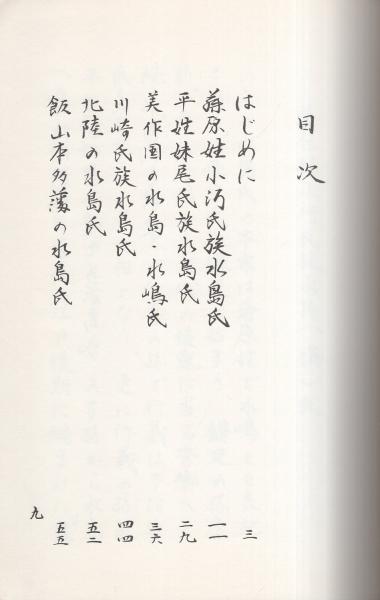 目次
はじめに 三
藤原姓小河氏族水島氏 一一
平姓妹尾氏族水島氏 二九
美作国の水島・水嶋氏 三六
川崎氏族水島氏 四四
北陸の水島氏 五二
飯山本多藩の水島氏 五五
九